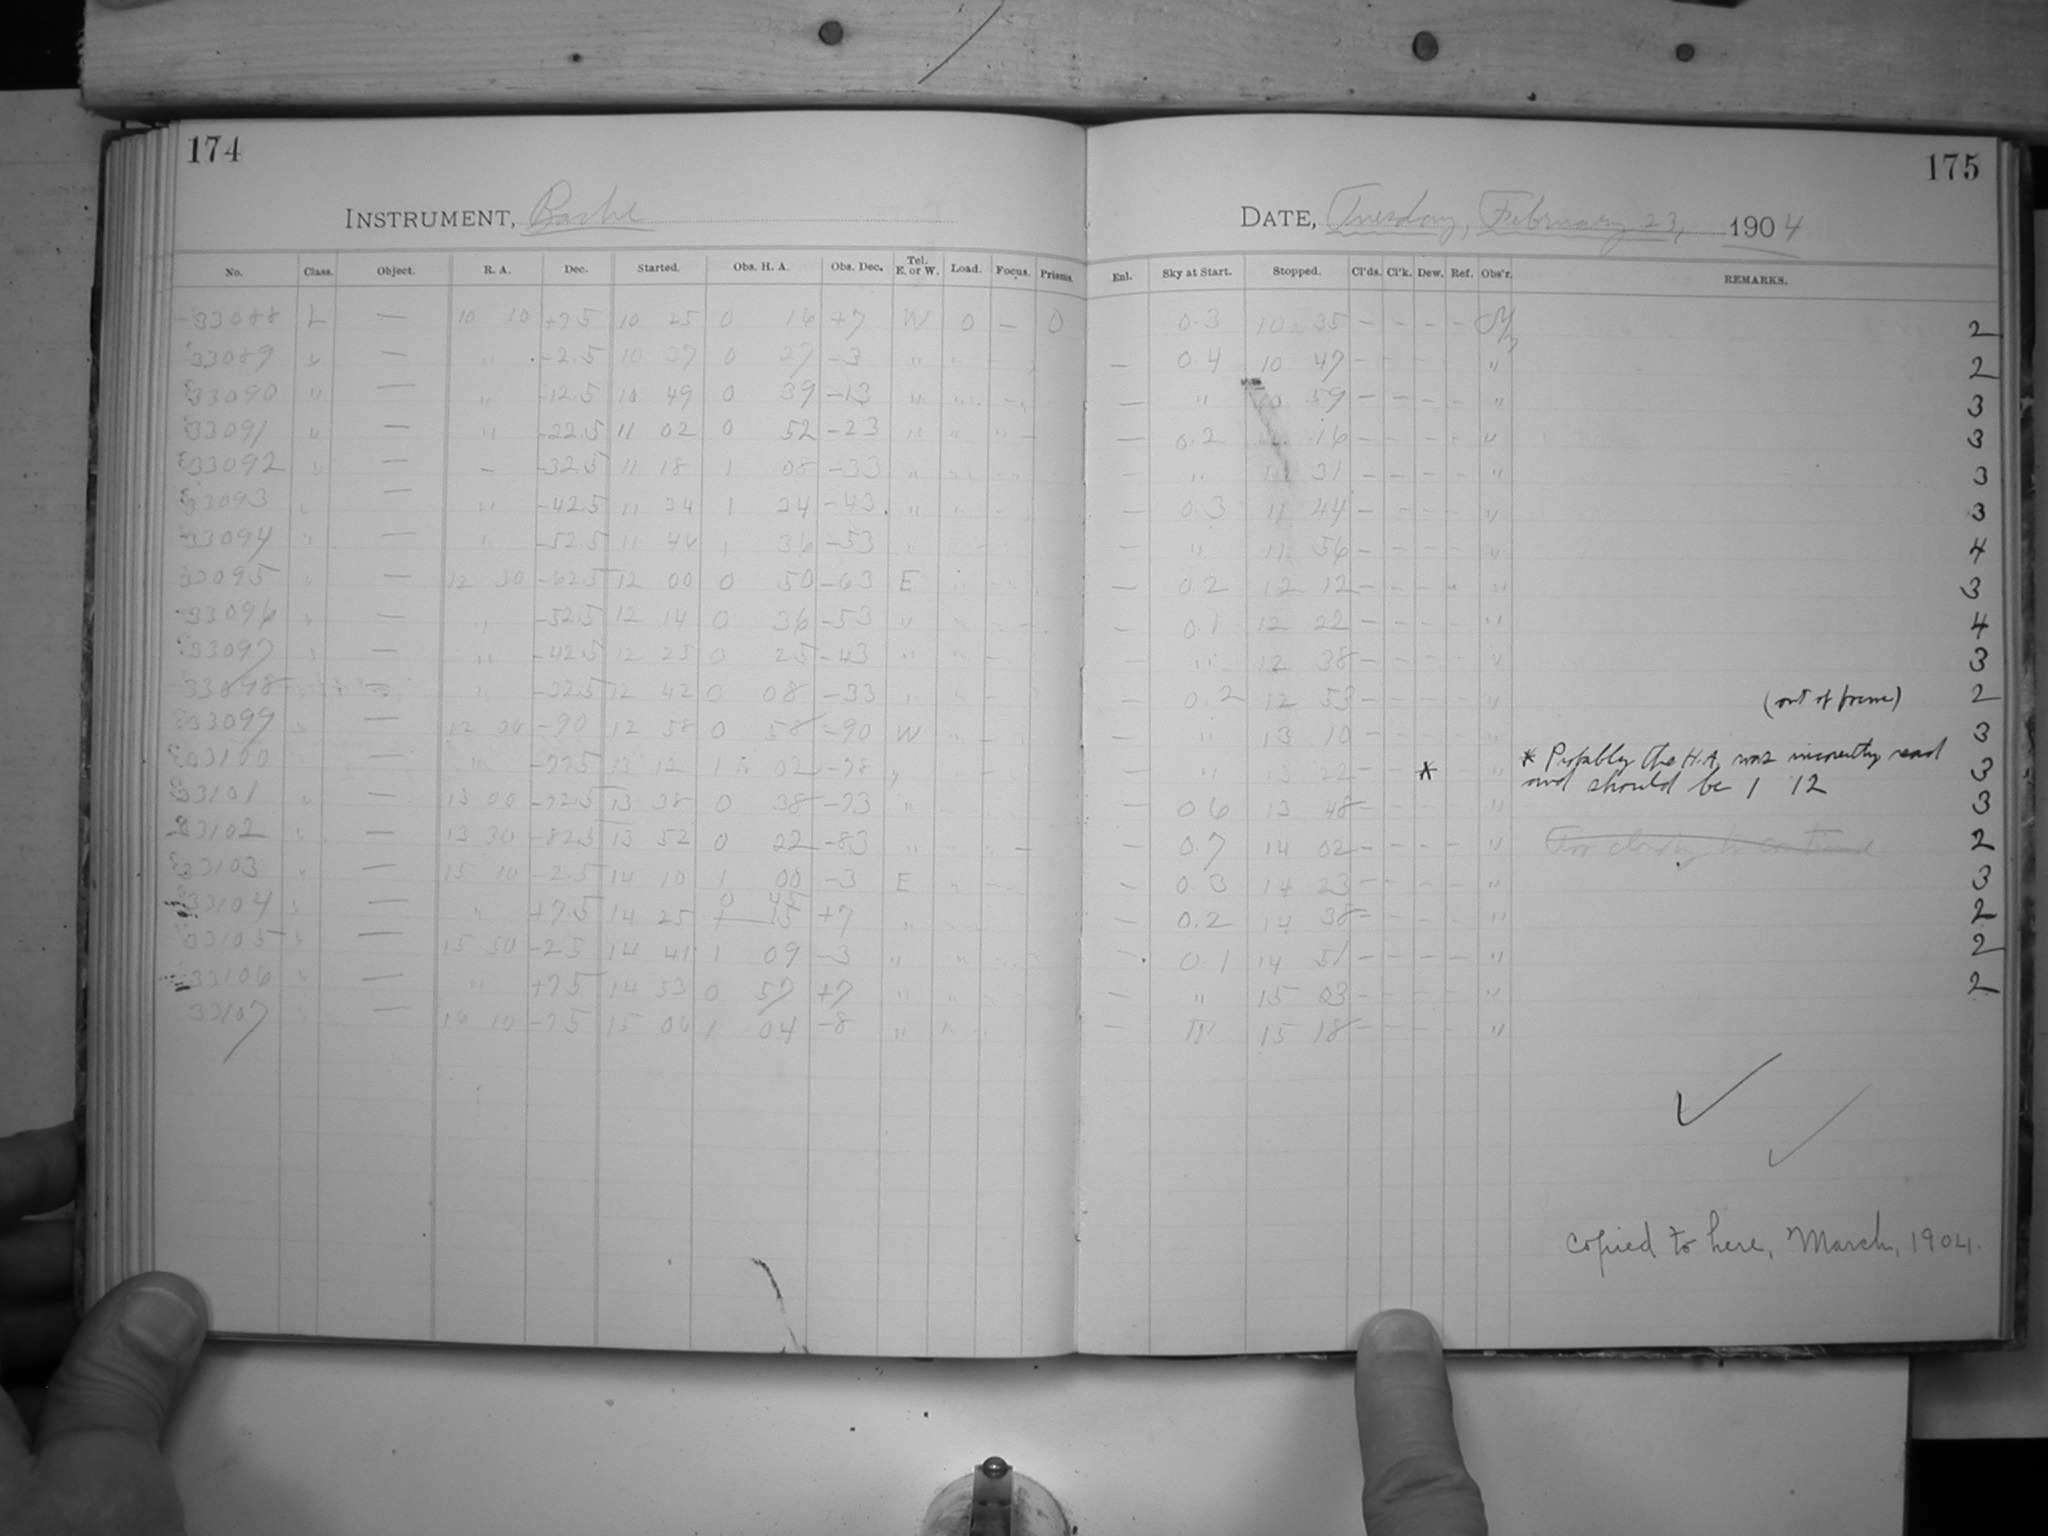 174
175
INSTRUMENT, Bache
DATE, Tuesday, February 23, 1904
No. Class. Object. R. A. Dec. Started. Obs. H. A. Obs. Dec. Tel. E. or W. Load. Focus. Prisms. Enl. Sky at Start. Stopped. Cl'ds. Cl'k. Dew. Ref. Obs'r. REMARKS.
33088 L — 10 10 +7.5 10 25 0 16 +7 W 0 — 0 0.3 10 35 - - - - 2
33089 " — " -2.5 10 37 0 27 -3 " " - — 0.4 10 47 - - - - " 2
33090 " — " -12.5 10 49 0 39 -13 " " - — " 10 59 - - - - " 3
33091 " — " -22.5 11 02 0 52 -23 " " " - — 0.2 11 16 - - - - " 3
33092 " — - -32.5 11 18 1 08 -33 " " - — " 11 31 - - - - " 3
33093 " — " -42.5 11 34 1 24 -43 " " - — 0.3 11 44 - - - - " 3
33094 " — " -52.5 11 46 1 36 -53 " - — " 11 56 - - - - " 4
33095 " — 12 50 -62.5 12 00 0 50 -63 E " - — 0.2 12 12 - - - - " 3
33096 " — " -52.5 12 14 0 36 -53 " " - — 0.1 12 22 - - - - " 4
33097 " — " -42.5 12 25 0 25 -43 " " - — " 12 38 - - - - " 3
33098 — " -32.5 12 42 0 08 -33 " " - — 0.2 12 53 - - - - " (out of frame) 2
33099 " — 12 00 -90 12 58 0 58 -90 W " - — " 13 10 - - - - " 3
33100 — " -77.5 13 12 1 02 -78 " — " 13 22 - - * - " * Probably the H.A. was incorrectly read 3
and should be 1 12
33101 " — 13 00 -72.5 13 38 0 38 -73 " — 0.6 13 48 - - - - " 3
33102 " — 13 30 -82.5 13 52 0 22 -83 " " " - — 0.7 14 02 - - - - " Too cloudy to continue 2
33103 " — 15 10 -2.5 14 10 1 00 -3 E " - — 0.3 14 23 - - - - " 3
0 45
33104 " — " +7.5 14 25 1 15 +7 " - — 0.2 14 38 - - - - " 2
33105 " — 15 50 -2.5 14 41 1 09 -3 " " - — 0.1 14 51 - - - - " 2
33106 " — " +7.5 14 53 0 57 +7 " " - — " 15 03 - - - - " 2
33107 " — 16 10 -7.5 15 06 1 04 -8 " — " 15 18 - - - - "
copied to here, March, 1904.